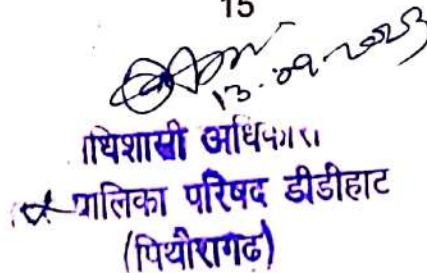 15
13.09.2023
धिशासी अधिकारी
पालिका परिषद डीडीहाट
(पिथौरागढ)